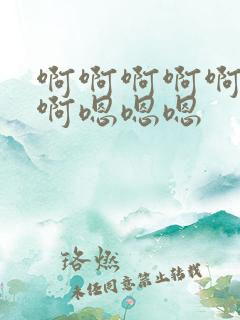 啊啊啊啊啊
啊嗯嗯嗯
珞燃
未经同意禁止转载